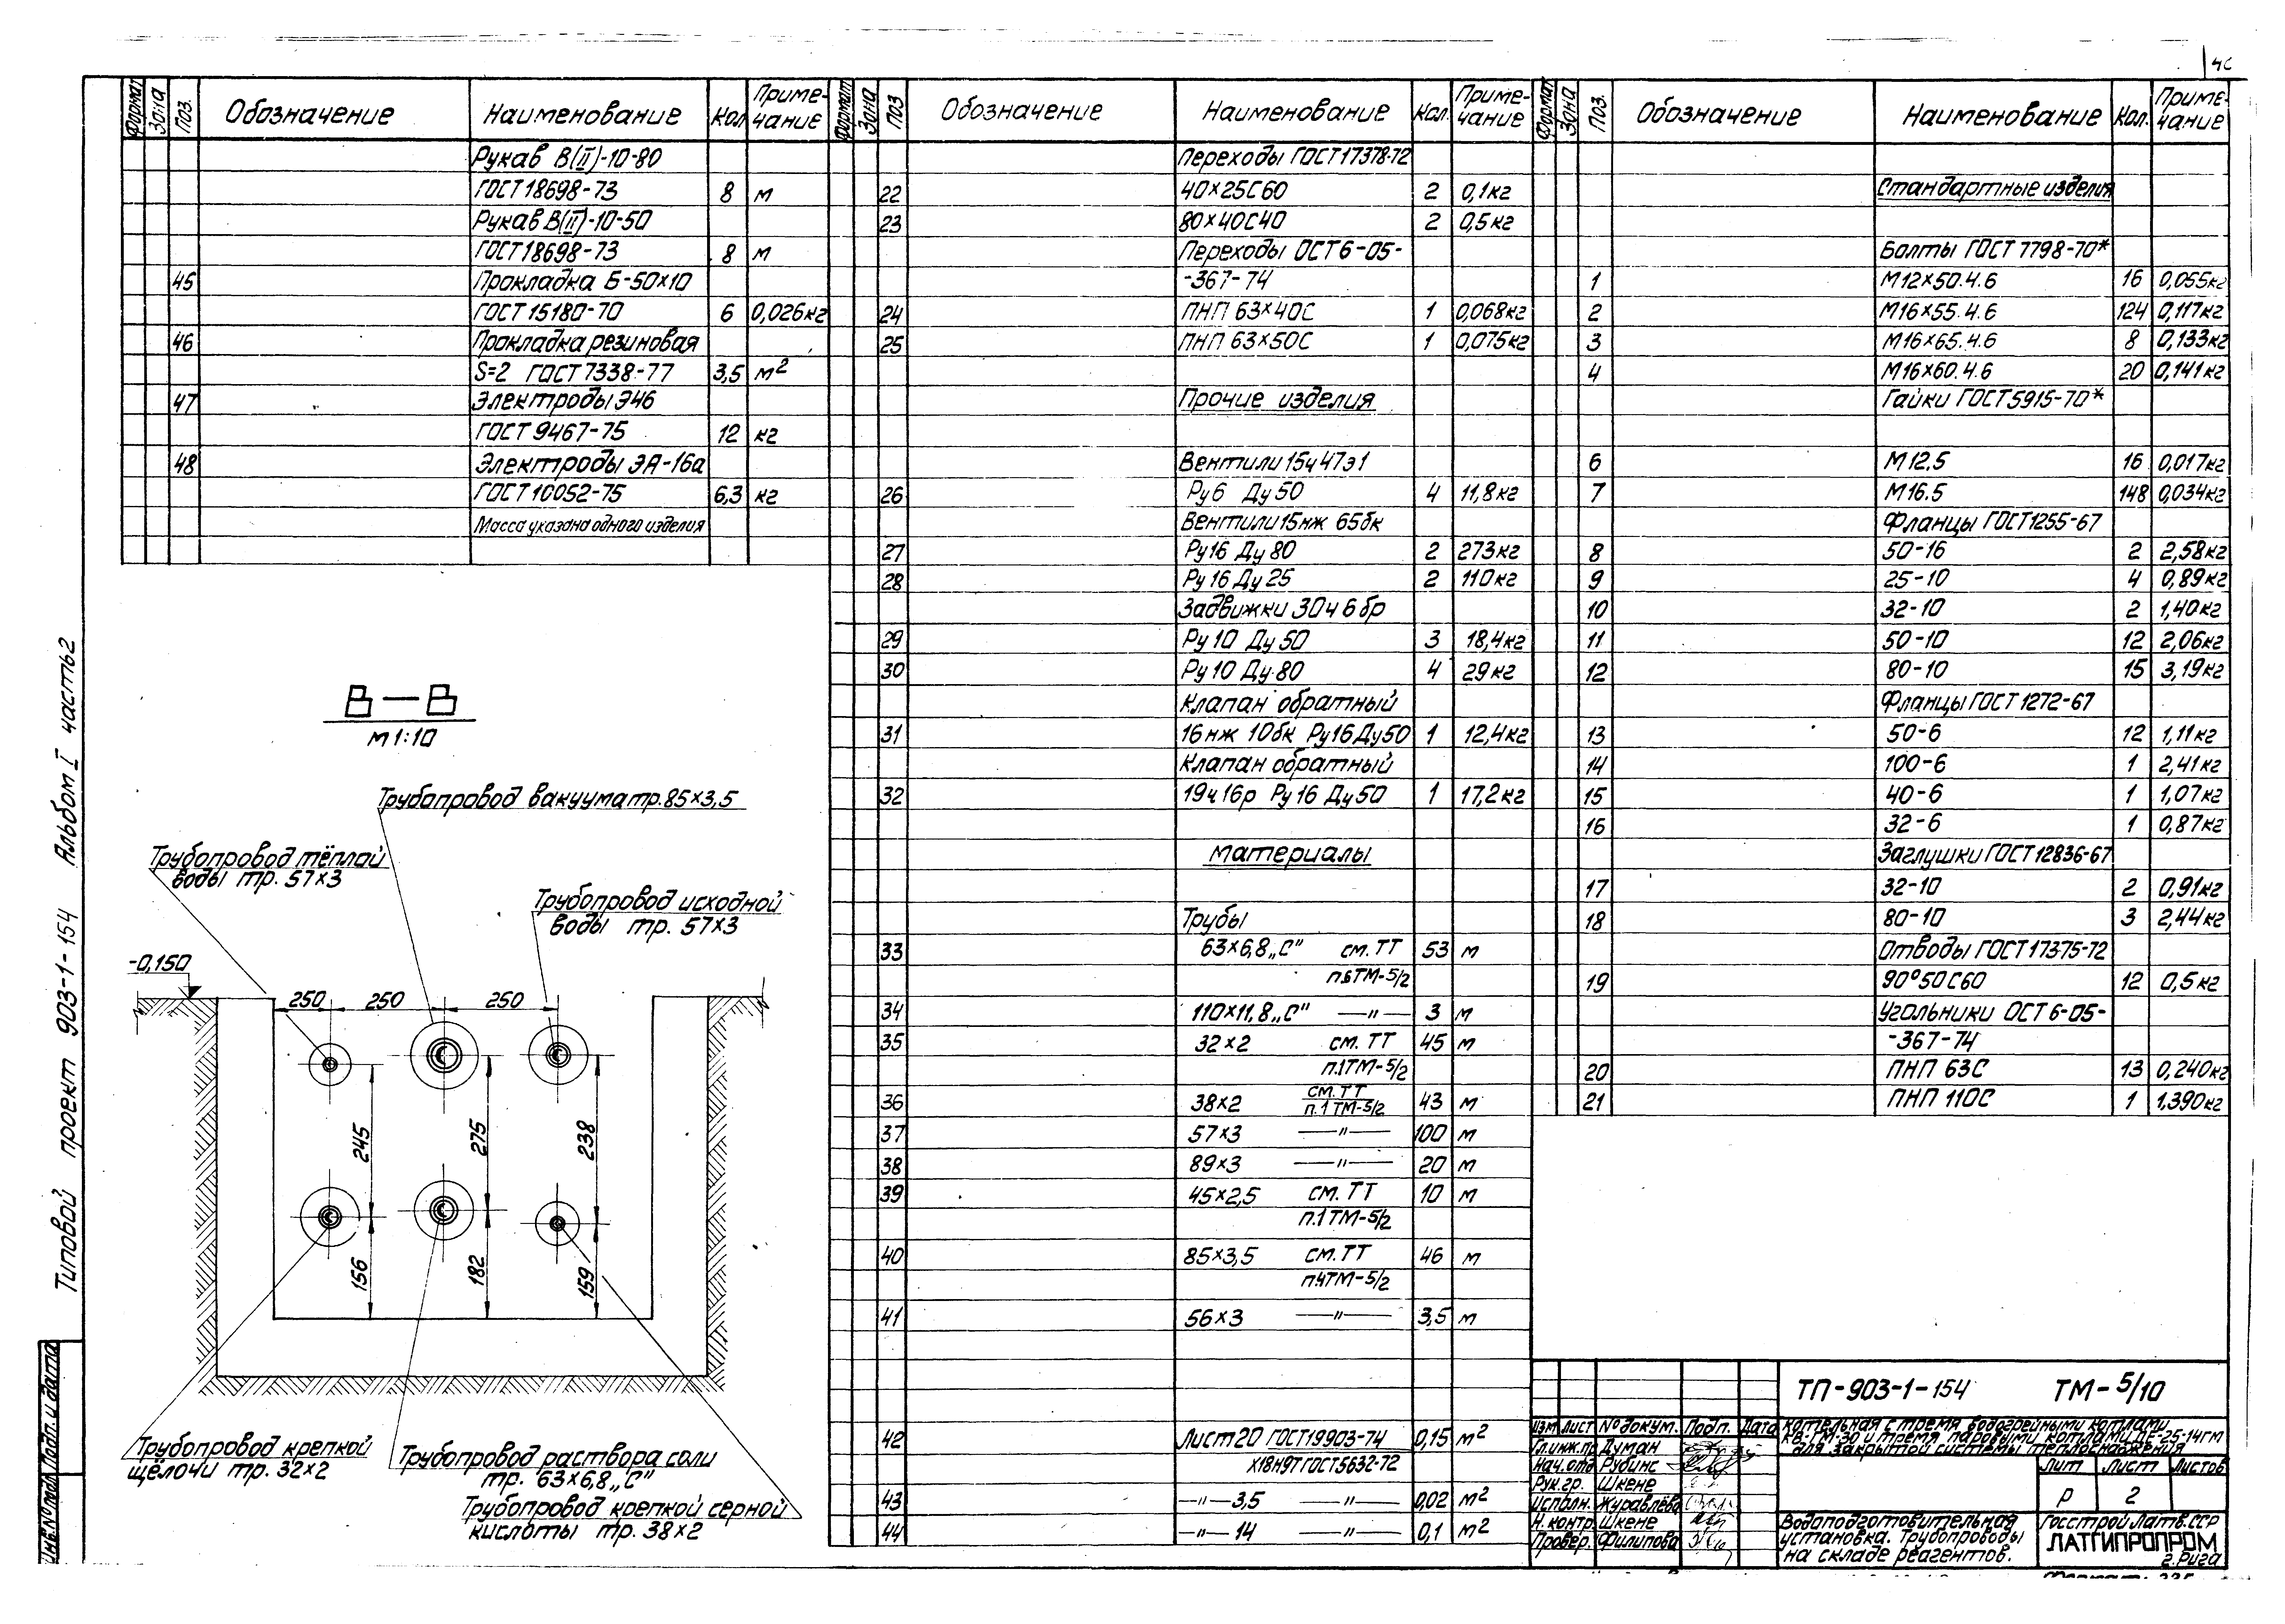 Формат Зона Поз. Обозначение Наименование Кол. Приме-чание
Рукав В(II)-10-80
ГОСТ 18698-73 8 м
Рукав В(II)-10-50
ГОСТ 18698-73 8 м
45 Прокладка Б-50×10
ГОСТ 15180-70 6 0,026кг
46 Прокладка резиновая
S=2 ГОСТ 7338-77 3,5 м²
47 Электроды Э46
ГОСТ 9467-75 12 кг
48 Электроды ЭА-16а
ГОСТ 10052-75 6,3 кг
Масса указана одного изделия
В—В
М 1:10
Трубопровод вакуума тр. 85×3,5
Трубопровод тёплой
воды тр. 57×3
Трубопровод исходной
воды тр. 57×3
-0,150
250 250 250
245 275 238
156 182 159
Трубопровод крепкой
щёлочи тр. 32×2
Трубопровод раствора соли
тр. 63×6,8 „С"
Трубопровод крепкой серной
кислоты тр. 38×2
Формат Зона Поз Обозначение Наименование Кол. Приме-чание
Переходы ГОСТ 17378-72
22 40×25С60 2 0,1кг
23 80×40С40 2 0,5кг
Переходы ОСТ 6-05-
-367-74
24 ПНП 63×40С 1 0,068кг
25 ПНП 63×50С 1 0,075кг
Прочие изделия
Вентили 15ч47э1
26 Ру6 Ду 50 4 11,8кг
Вентили 15нж 65бк
27 Ру16 Ду 80 2 273кг
28 Ру 16 Ду 25 2 110кг
Задвижки 30ч 6 бр
29 Ру 10 Ду 50 3 18,4кг
30 Ру 10 Ду 80 4 29 кг
Клапан обратный
31 16нж 10бк Ру16 Ду50 1 12,4кг
Клапан обратный
32 19ч16р Ру 16 Ду50 1 17,2кг
Материалы
Трубы
33 63×6,8 „С" см. ТТ 53 м
п.6ТМ-5/2
34 110×11,8 „С" —"— 3 м
35 32×2 см. ТТ 45 м
п.1ТМ-5/2
36 38×2 см. ТТ 43 м
п.1 ТМ-5/2
37 57×3 —"— 100 м
38 89×3 —"— 20 м
39 45×2,5 см. ТТ 10 м
п.1 ТМ-5/2
40 85×3,5 см. ТТ 46 м
п.4ТМ-5/2
41 56×3 —"— 3,5 м
42 Лист 20 ГОСТ 19903-74 0,15 м²
Х18Н9Т ГОСТ 5632-72
43 —"— 3,5 —"— 0,02 м²
44 —"— 14 —"— 0,1 м²
Формат Зона Поз. Обозначение Наименование Кол. Приме-чание
Стандартные изделия
Болты ГОСТ 7798-70*
1 М12×50.4.6 16 0,055кг
2 М16×55.4.6 124 0,117кг
3 М16×65.4.6 8 0,133кг
4 М16×60.4.6 20 0,141кг
Гайки ГОСТ 5915-70*
6 М12.5 16 0,017кг
7 М16.5 148 0,034кг
Фланцы ГОСТ 1255-67
8 50-16 2 2,58кг
9 25-10 4 0,89кг
10 32-10 2 1,40кг
11 50-10 12 2,06кг
12 80-10 15 3,19кг
Фланцы ГОСТ 1272-67
13 50-6 12 1,11кг
14 100-6 1 2,41кг
15 40-6 1 1,07кг
16 32-6 1 0,87кг
Заглушки ГОСТ 12836-67
17 32-10 2 0,91кг
18 80-10 3 2,44кг
Отводы ГОСТ 17375-72
19 90°50С60 12 0,5кг
Угольники ОСТ 6-05-
-367-74
20 ПНП 63С 13 0,240кг
21 ПНП 110С 1 1,390кг
ТП-903-1-154 ТМ-5/10
Изм Лист № докум. Подп. Дата
Гл.инж.пр Думан
Нач. отд Рубинс
Рук.гр. Шкене
Исполн. Журавлёва
Н. контр. Шкене
Провер. Филипова
Котельная с тремя водогрейными котлами
КВ-ГМ-30 и тремя паровыми котлами ДЕ-25-14ГМ
для закрытой системы теплоснабжения
Лит Лист Листов
Р 2
Водоподготовительная
установка. Трубопроводы
на складе реагентов.
Госстрой Латв.ССР
ЛАТГИПРОПРОМ
г. Рига
Типовой проект 903-1-154 Альбом I часть 2
Инв.№ подл. Подп. и дата